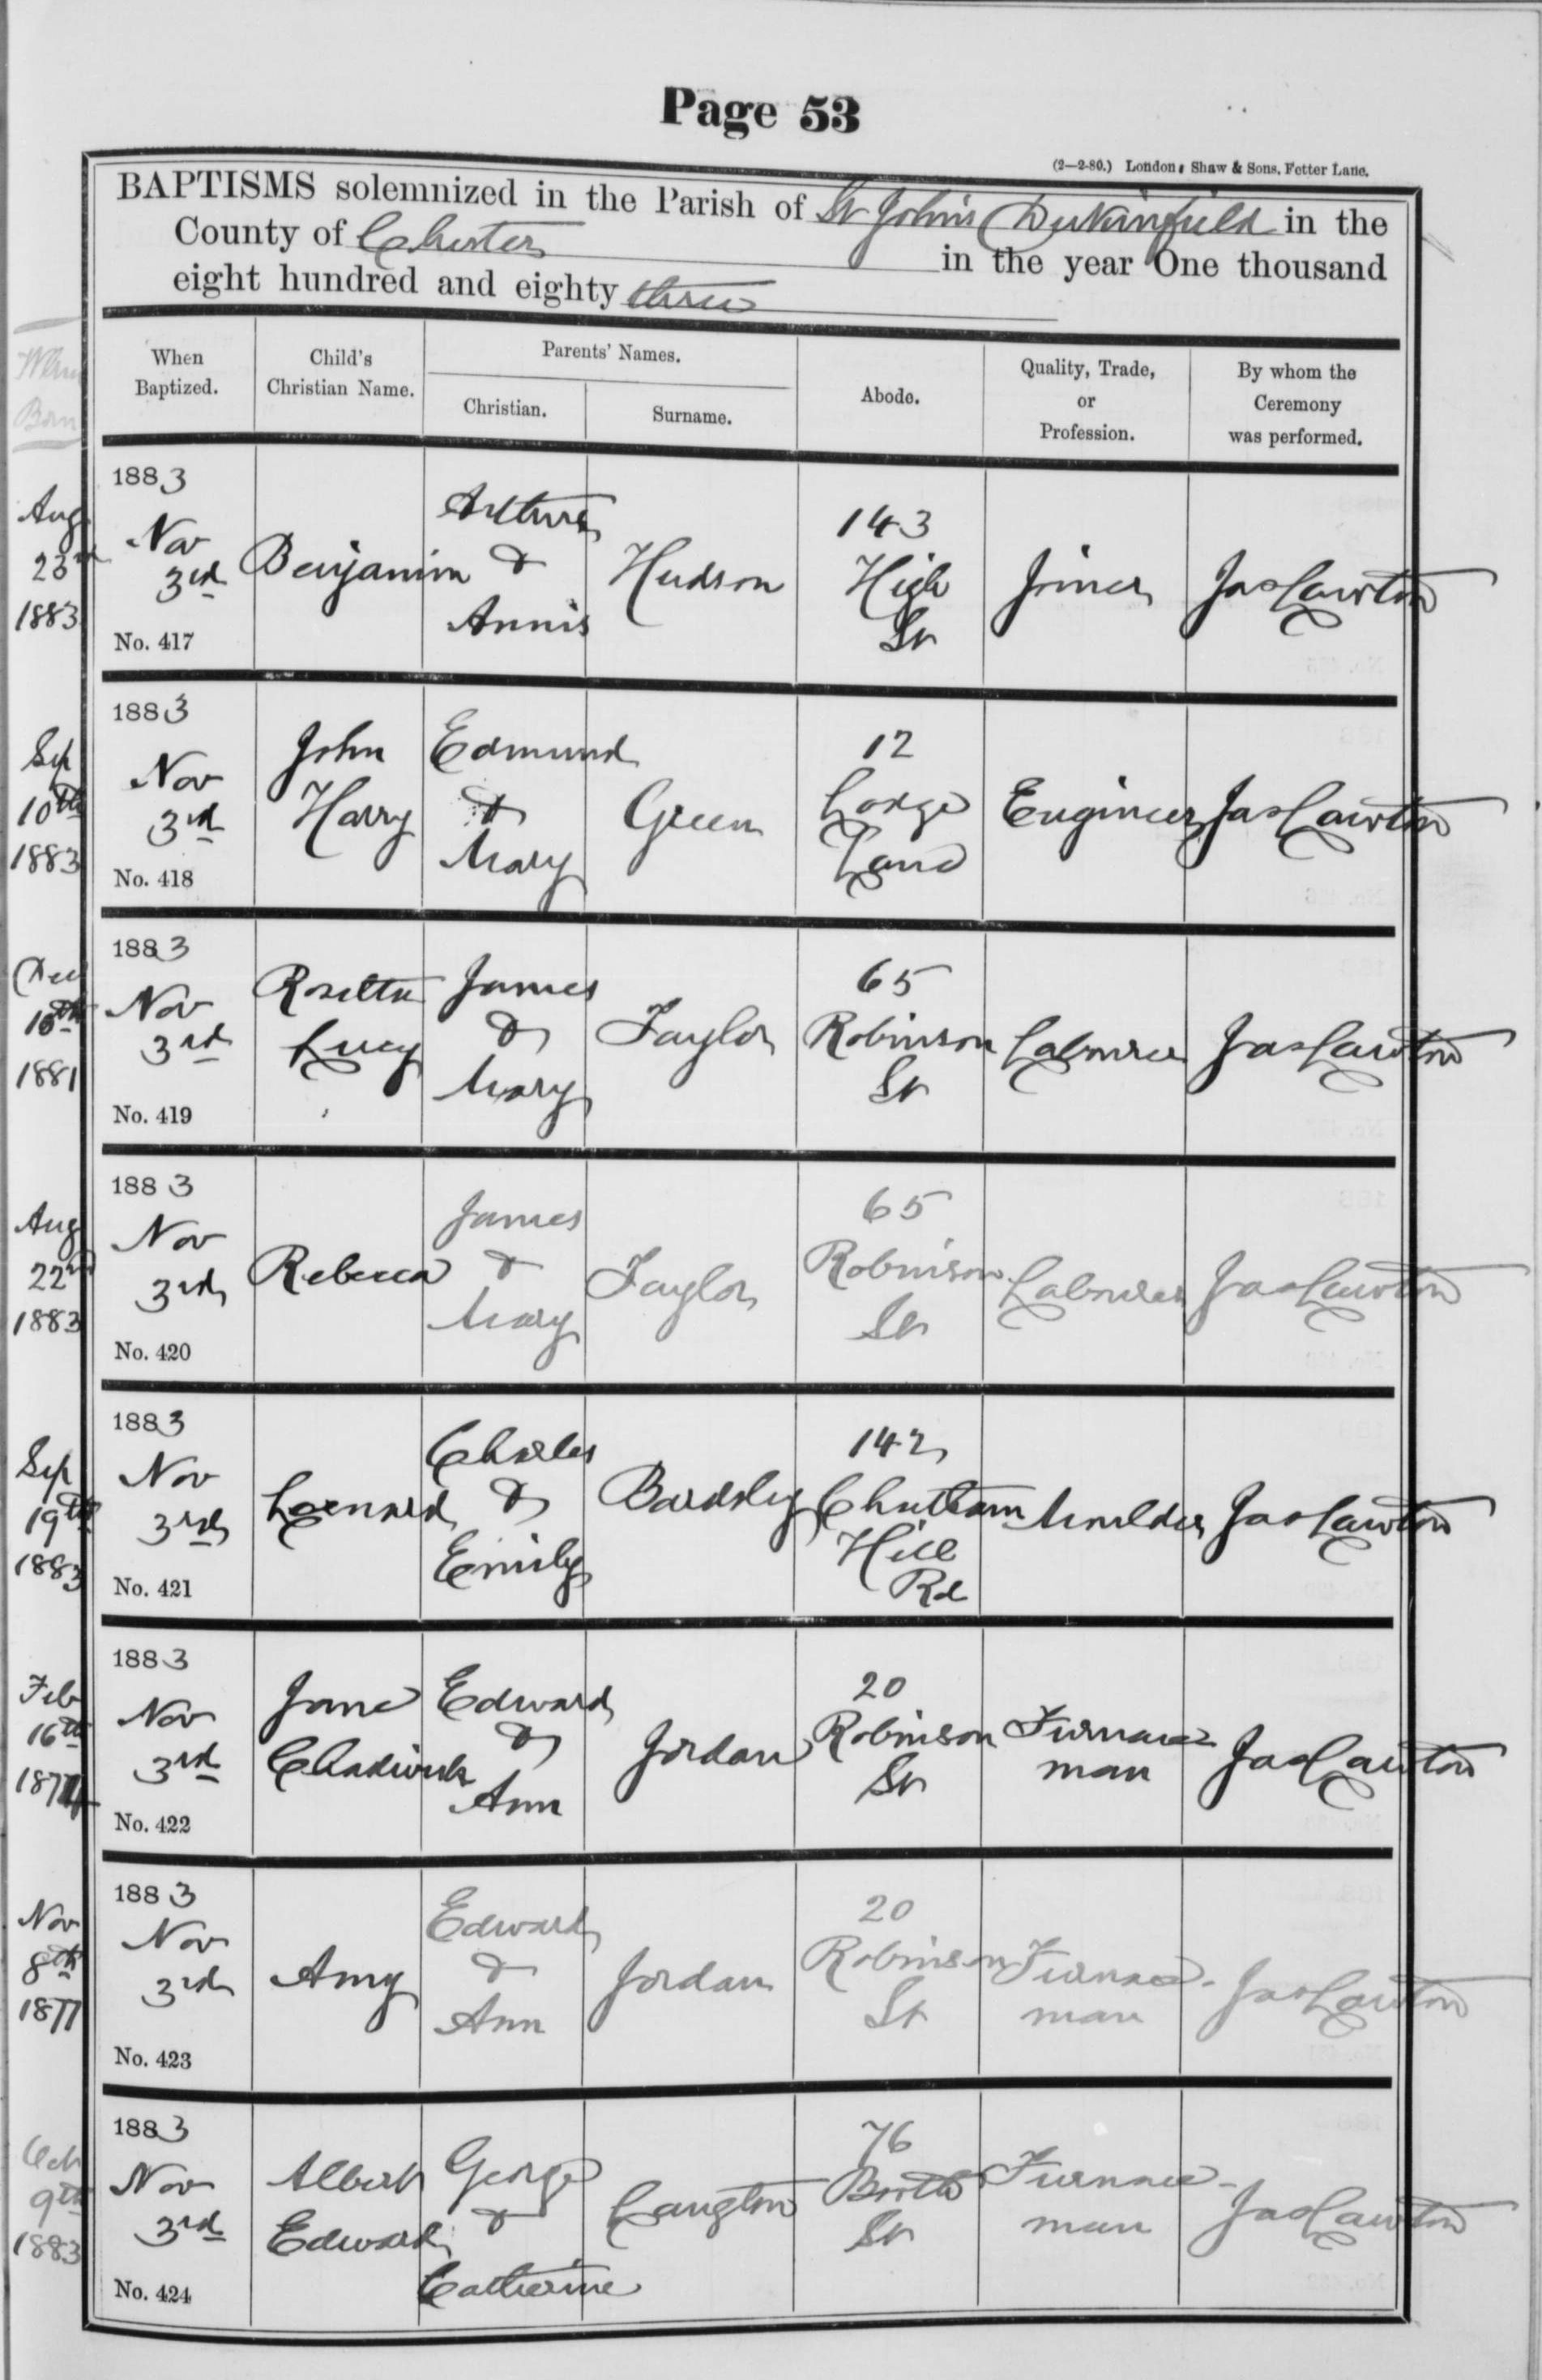 Page 53
(2—2-80.) London: Shaw & Sons, Fetter Lane.
BAPTISMS solemnized in the Parish of St Johns Dukinfield in the
County of Chester in the year One thousand
eight hundred and eighty three
When Born
When Baptized.
Child's Christian Name.
Parents' Names.
Christian.
Surname.
Abode.
Quality, Trade, or Profession.
By whom the Ceremony was performed.
Aug 23rd 1883
1883 Nov 3rd No. 417
Benjamin
Arthur & Annis
Hudson
143 High St
Joiner
Jas Lawton
Sep 10th 1883
1883 Nov 3rd No. 418
John Harry
Edmund & Mary
Green
12 Lodge Lane
Engineer
Jas Lawton
Dec 10th 1881
1883 Nov 3rd No. 419
Rosetta Lucy
James & Mary
Taylor
65 Robinson St
Labourer
Jas Lawton
Aug 22nd 1883
1883 Nov 3rd No. 420
Rebecca
James & Mary
Taylor
65 Robinson St
Labourer
Jas Lawton
Sep 19th 1883
1883 Nov 3rd No. 421
Leonard
Charles & Emily
Bardsley
142 Chatham Hill Rd
Moulder
Jas Lawton
Feb 16th 1874
1883 Nov 3rd No. 422
Jane Chadwick
Edward & Ann
Jordan
20 Robinson St
Furnace man
Jas Lawton
Nov 8th 1877
1883 Nov 3rd No. 423
Amy
Edward & Ann
Jordan
20 Robinson St
Furnace-man
Jas Lawton
Oct 9th 1883
1883 Nov 3rd No. 424
Albert Edward
George & Catherine
Langton
76 Booth St
Furnace-man
Jas Lawton